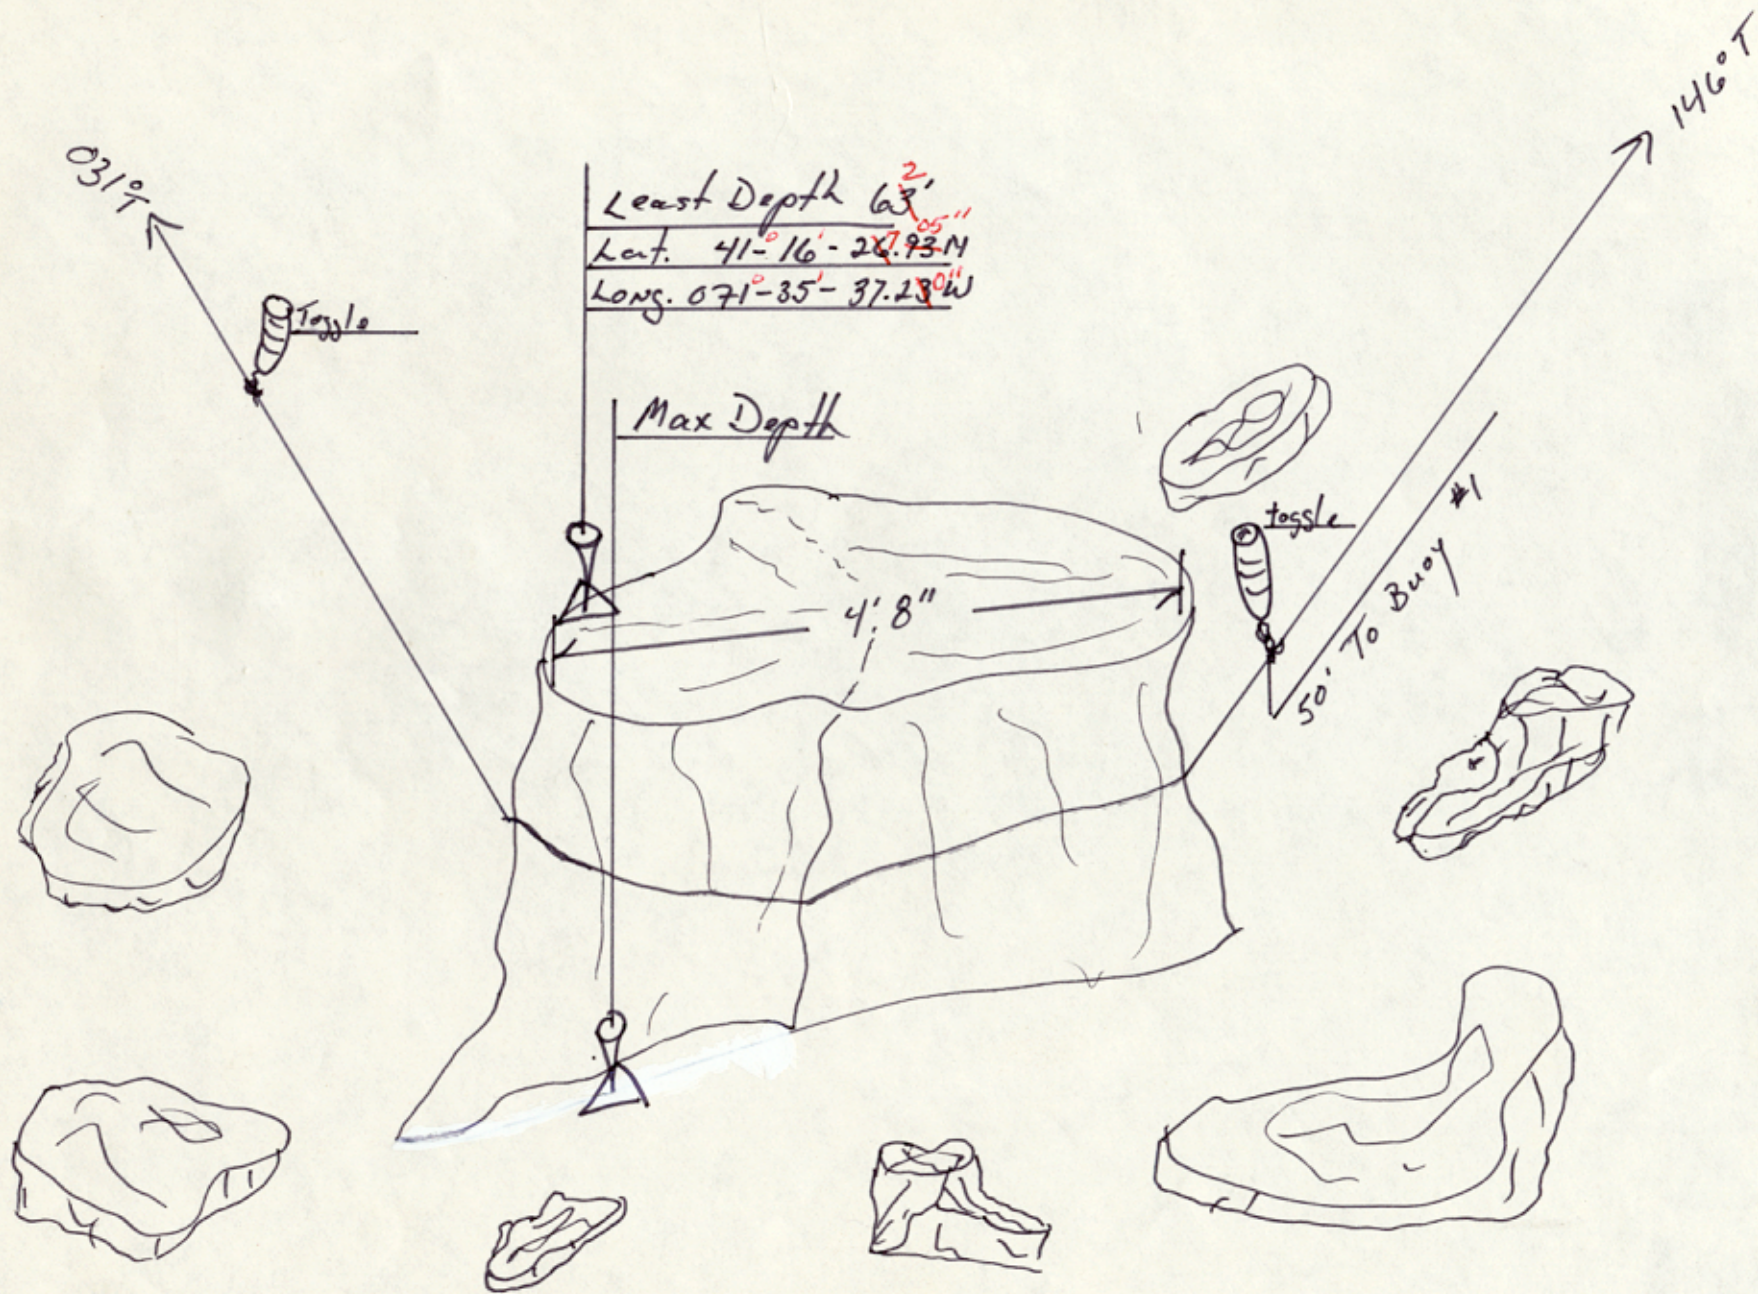 146°T
031°T
Least Depth 63' 2
Lat. 41°-16'-26.93 N 7.05"
Long. 071°-35'-37.23 W 0"
Toggle
Max Depth
toggle
4'.8"
50' To Buoy #1